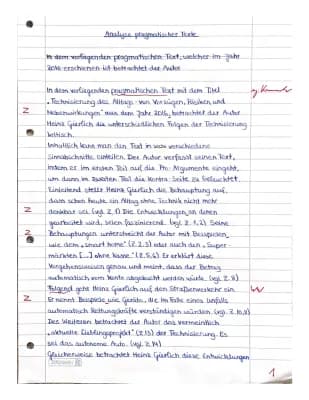 Analyse pragmatischer Texte
In dem vorliegenden pragmatischen Text, welcher im Jahr
2016 erschienen ist betrachtet der Autor
In dem vorliegenden pragmatischen Text mit dem Titel
„Technisierung des Alltags - von Vorzügen, Risiken und
Nebenwirkungen" aus dem Jahr 2016, betrachtet der Autor
Heinz Gierlich die unterschiedlichen Folgen der Technisierung
kritisch.
Inhaltlich kann man den Text in zwei verschiedene
Sinnabschnitte einteilen. Der Autor verfasst seinen Text,
indem er im ersten Teil auf die Pro-Argumente eingeht,
um dann im zweiten Teil die Kontra Seite zu beleuchten.
Einleitend stellt Heinz Gierlich die Behauptung auf,
dass schon heute ein Alltag ohne Technik nicht mehr
denkbar sei (vgl. Z.1). Die Entwicklungen, an denen
gearbeitet wird, seien faszinierend. (vgl. Z.1,2) Seine
Behauptungen unterstreicht der Autor mit Beispielen,
wie dem „smart home" (Z.2,3) oder auch den „Super-
märkten [...] ohne Kasse." (Z.5,6) Er erklärt diese
Vorgehensweisen genau und meint, dass der Betrag
automatisch vom Konto abgebucht werden würde. (vgl. Z.8)
Folgend geht Heinz Gierlich auf den Straßenverkehr ein.
Er nennt Beispiele, wie Geräte, die im Falle eines Unfalls
automatisch Rettungskräfte verständigen würden. (vgl. Z.10,11)
Des Weiteren betrachtet der Autor das vermeintlich
„aktuelle Lieblingsprojekt" (Z.13) der Technisierung. Es
sei das autonome Auto. (vgl. Z.14)
Gleicherweise betrachtet Heinz Gierlich diese Entwicklungen
Z
Z
Z
Z
W
1